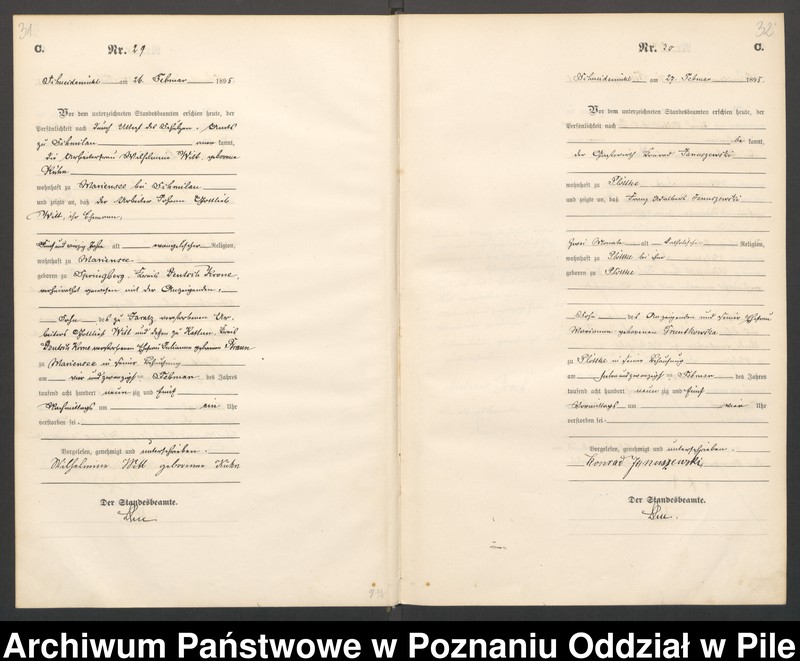 31
C. Nr. 29
Schneidemühl am 26. Februar 1895
Vor dem unterzeichneten Standesbeamten erschien heute, der
Persönlichkeit nach durch Attest des Schulzen-Amts
zu Schmilau anerkannt,
die Arbeiterfrau Wilhelmine Witt geborene
Kuhn
wohnhaft zu Mariensee bei Schmilau
und zeigte an, daß der Arbeiter Johann Gottlieb
Witt, ihr Ehemann,
Fünf und vierzig Jahre alt evangelischer Religion,
wohnhaft zu Mariensee
geboren zu Springberg, Kreis Deutsch Krone,
verheirathet gewesen mit der Anzeigenden,
Sohn des zu verstorbenen Ar-
beiters Gottlieb Witt und dessen zu Kreis
Deutsch Krone verstorbenen Ehefrau geborenen
zu Mariensee in seiner Behausung
am vier und zwanzigsten Februar des Jahres
tausend acht hundert neunzig und fünf
Nachmittags um ein Uhr
verstorben sei.
Vorgelesen, genehmigt und unterschrieben.
Wilhelmine Witt geborenne Kuhn
Der Standesbeamte.
32
Nr. 30 C.
Schneidemühl am 27. Februar 1895
Vor dem unterzeichneten Standesbeamten erschien heute, der
Persönlichkeit nach
bekannt,
der Konrad Januszewski
wohnhaft zu Plöttke
und zeigte an, daß Franz Adalbert Januszewski
zwei Monate alt katholischer Religion,
wohnhaft zu Plöttke bei ihm
geboren zu Plöttke
Sohn des Anzeigenden und seiner Ehefrau
Marianna geborenen
zu Plöttke in seiner Behausung
am sieben und zwanzigsten Februar des Jahres
tausend acht hundert neunzig und fünf
Vormittags um vier Uhr
verstorben sei.
Vorgelesen, genehmigt und unterschrieben.
Konrad Januszewski
Der Standesbeamte.
Archiwum Państwowe w Poznaniu Oddział w Pile